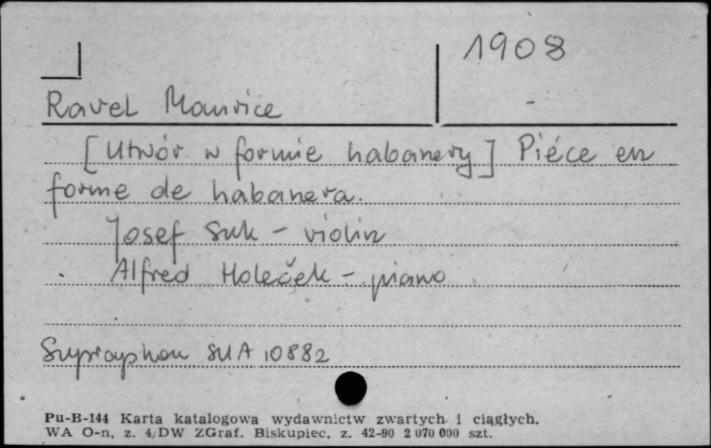 1908
Ravel Maurice
[Utwór w formie habanery] Piéce en
forme de habanera.
Josef Suk - violin
Alfred Holeček - piano
Supraphon SUA 10882
Pu-B-144 Karta katalogowa wydawnictw zwartych i ciągłych.
WA O-n, z. 4/DW ZGraf. Biskupiec, z. 42-90 2 070 000 szt.